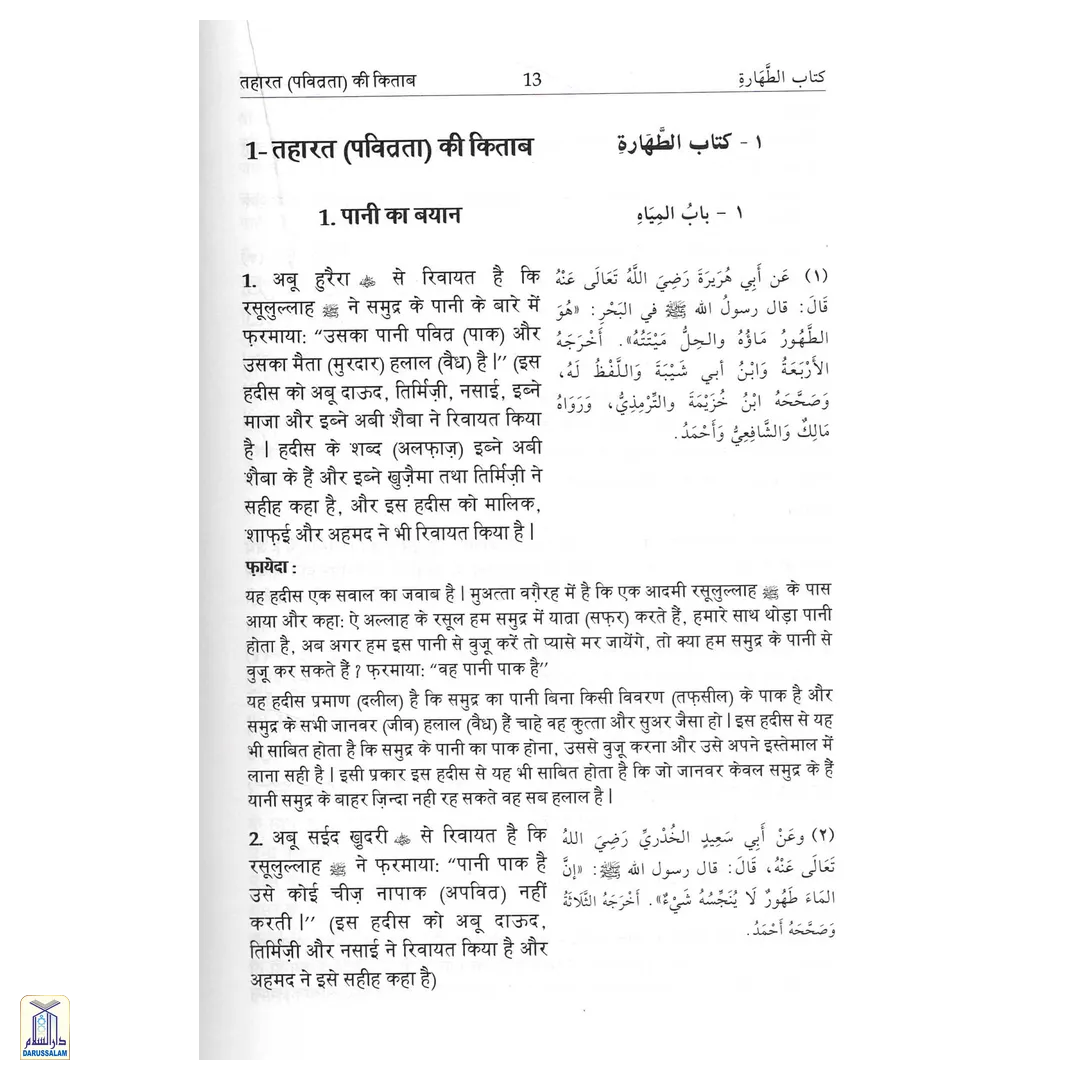 तहारत (पवित्रता) की किताब 13 كتاب الطَّهَارةِ
1- तहारत (पवित्रता) की किताब
١ - كتاب الطَّهَارةِ
1. पानी का बयान
١ - بابُ المِيَاهِ
1. अबू हुरैरा ﷛ से रिवायत है कि
रसूलुल्लाह ﷺ ने समुद्र के पानी के बारे में
फ़रमाया: “उसका पानी पवित्र (पाक) और
उसका मैता (मुरदार) हलाल (वैध) है|’’ (इस
हदीस को अबू दाऊद, तिर्मिज़ी, नसाई, इब्ने
माजा और इब्ने अबी शैबा ने रिवायत किया
है | हदीस के शब्द (अलफ़ाज़) इब्ने अबी
शैबा के हैं और इब्ने खुज़ैमा तथा तिर्मिज़ी ने
सहीह कहा है, और इस हदीस को मालिक,
शाफ़ई और अहमद ने भी रिवायत किया है |
(١) عَن أَبِي هُرَيرَةَ رَضِيَ اللَّهُ تَعَالَى عَنْهُ
قَالَ: قال رسولُ الله ﷺ في البَحْرِ: «هُوَ
الطَّهُورُ مَاؤُهُ والحِلُّ مَيْتَتُهُ». أَخْرَجَهُ
الأَرْبَعَةُ وَابْنُ أبي شَيْبَةَ وَاللَّفْظُ لَهُ،
وَصَحَّحَهُ ابْنُ خُزَيْمَةَ والتِّرْمذِيُّ، وَرَوَاهُ
مَالِكٌ وَالشَّافِعِيُّ وَأَحْمَدُ.
फ़ायेदा :
यह हदीस एक सवाल का जवाब है | मुअत्ता वग़ैरह में है कि एक आदमी रसूलुल्लाह ﷺ के पास
आया और कहा: ऐ अल्लाह के रसूल हम समुद्र में यात्रा (सफ़र) करते हैं, हमारे साथ थोड़ा पानी
होता है, अब अगर हम इस पानी से वुजू करें तो प्यासे मर जायेंगे, तो क्या हम समुद्र के पानी से
वुजू कर सकते हैं ? फ़रमाया: “वह पानी पाक है’’
यह हदीस प्रमाण (दलील) है कि समुद्र का पानी बिना किसी विवरण (तफ़सील) के पाक है और
समुद्र के सभी जानवर (जीव) हलाल (वैध) हैं चाहे वह कुत्ता और सुअर जैसा हो | इस हदीस से यह
भी साबित होता है कि समुद्र के पानी का पाक होना, उससे वुजू करना और उसे अपने इस्तेमाल में
लाना सही है | इसी प्रकार इस हदीस से यह भी साबित होता है कि जो जानवर केवल समुद्र के हैं
यानी समुद्र के बाहर ज़िन्दा नही रह सकते वह सब हलाल है |
2. अबू सईद खुदरी ﷛ से रिवायत है कि
रसूलुल्लाह ﷺ ने फ़रमाया: “पानी पाक है
उसे कोई चीज़ नापाक (अपवित्र) नहीं
करती |’’ (इस हदीस को अबू दाऊद,
तिर्मिज़ी और नसाई ने रिवायत किया है और
अहमद ने इसे सहीह कहा है)
(٢) وعَنْ أَبِي سَعِيدٍ الخُدْريِّ رَضِيَ اللهُ
تَعَالَى عَنْهُ، قَالَ: قال رسول الله ﷺ: «إنَّ
المَاءَ طَهُورٌ لَا يُنَجِّسُهُ شَيْءٌ». أَخْرَجَهُ الثَّلَاثَةُ
وَصَحَّحَهُ أَحْمَدُ.
دارالسلام
DARUSSALAM